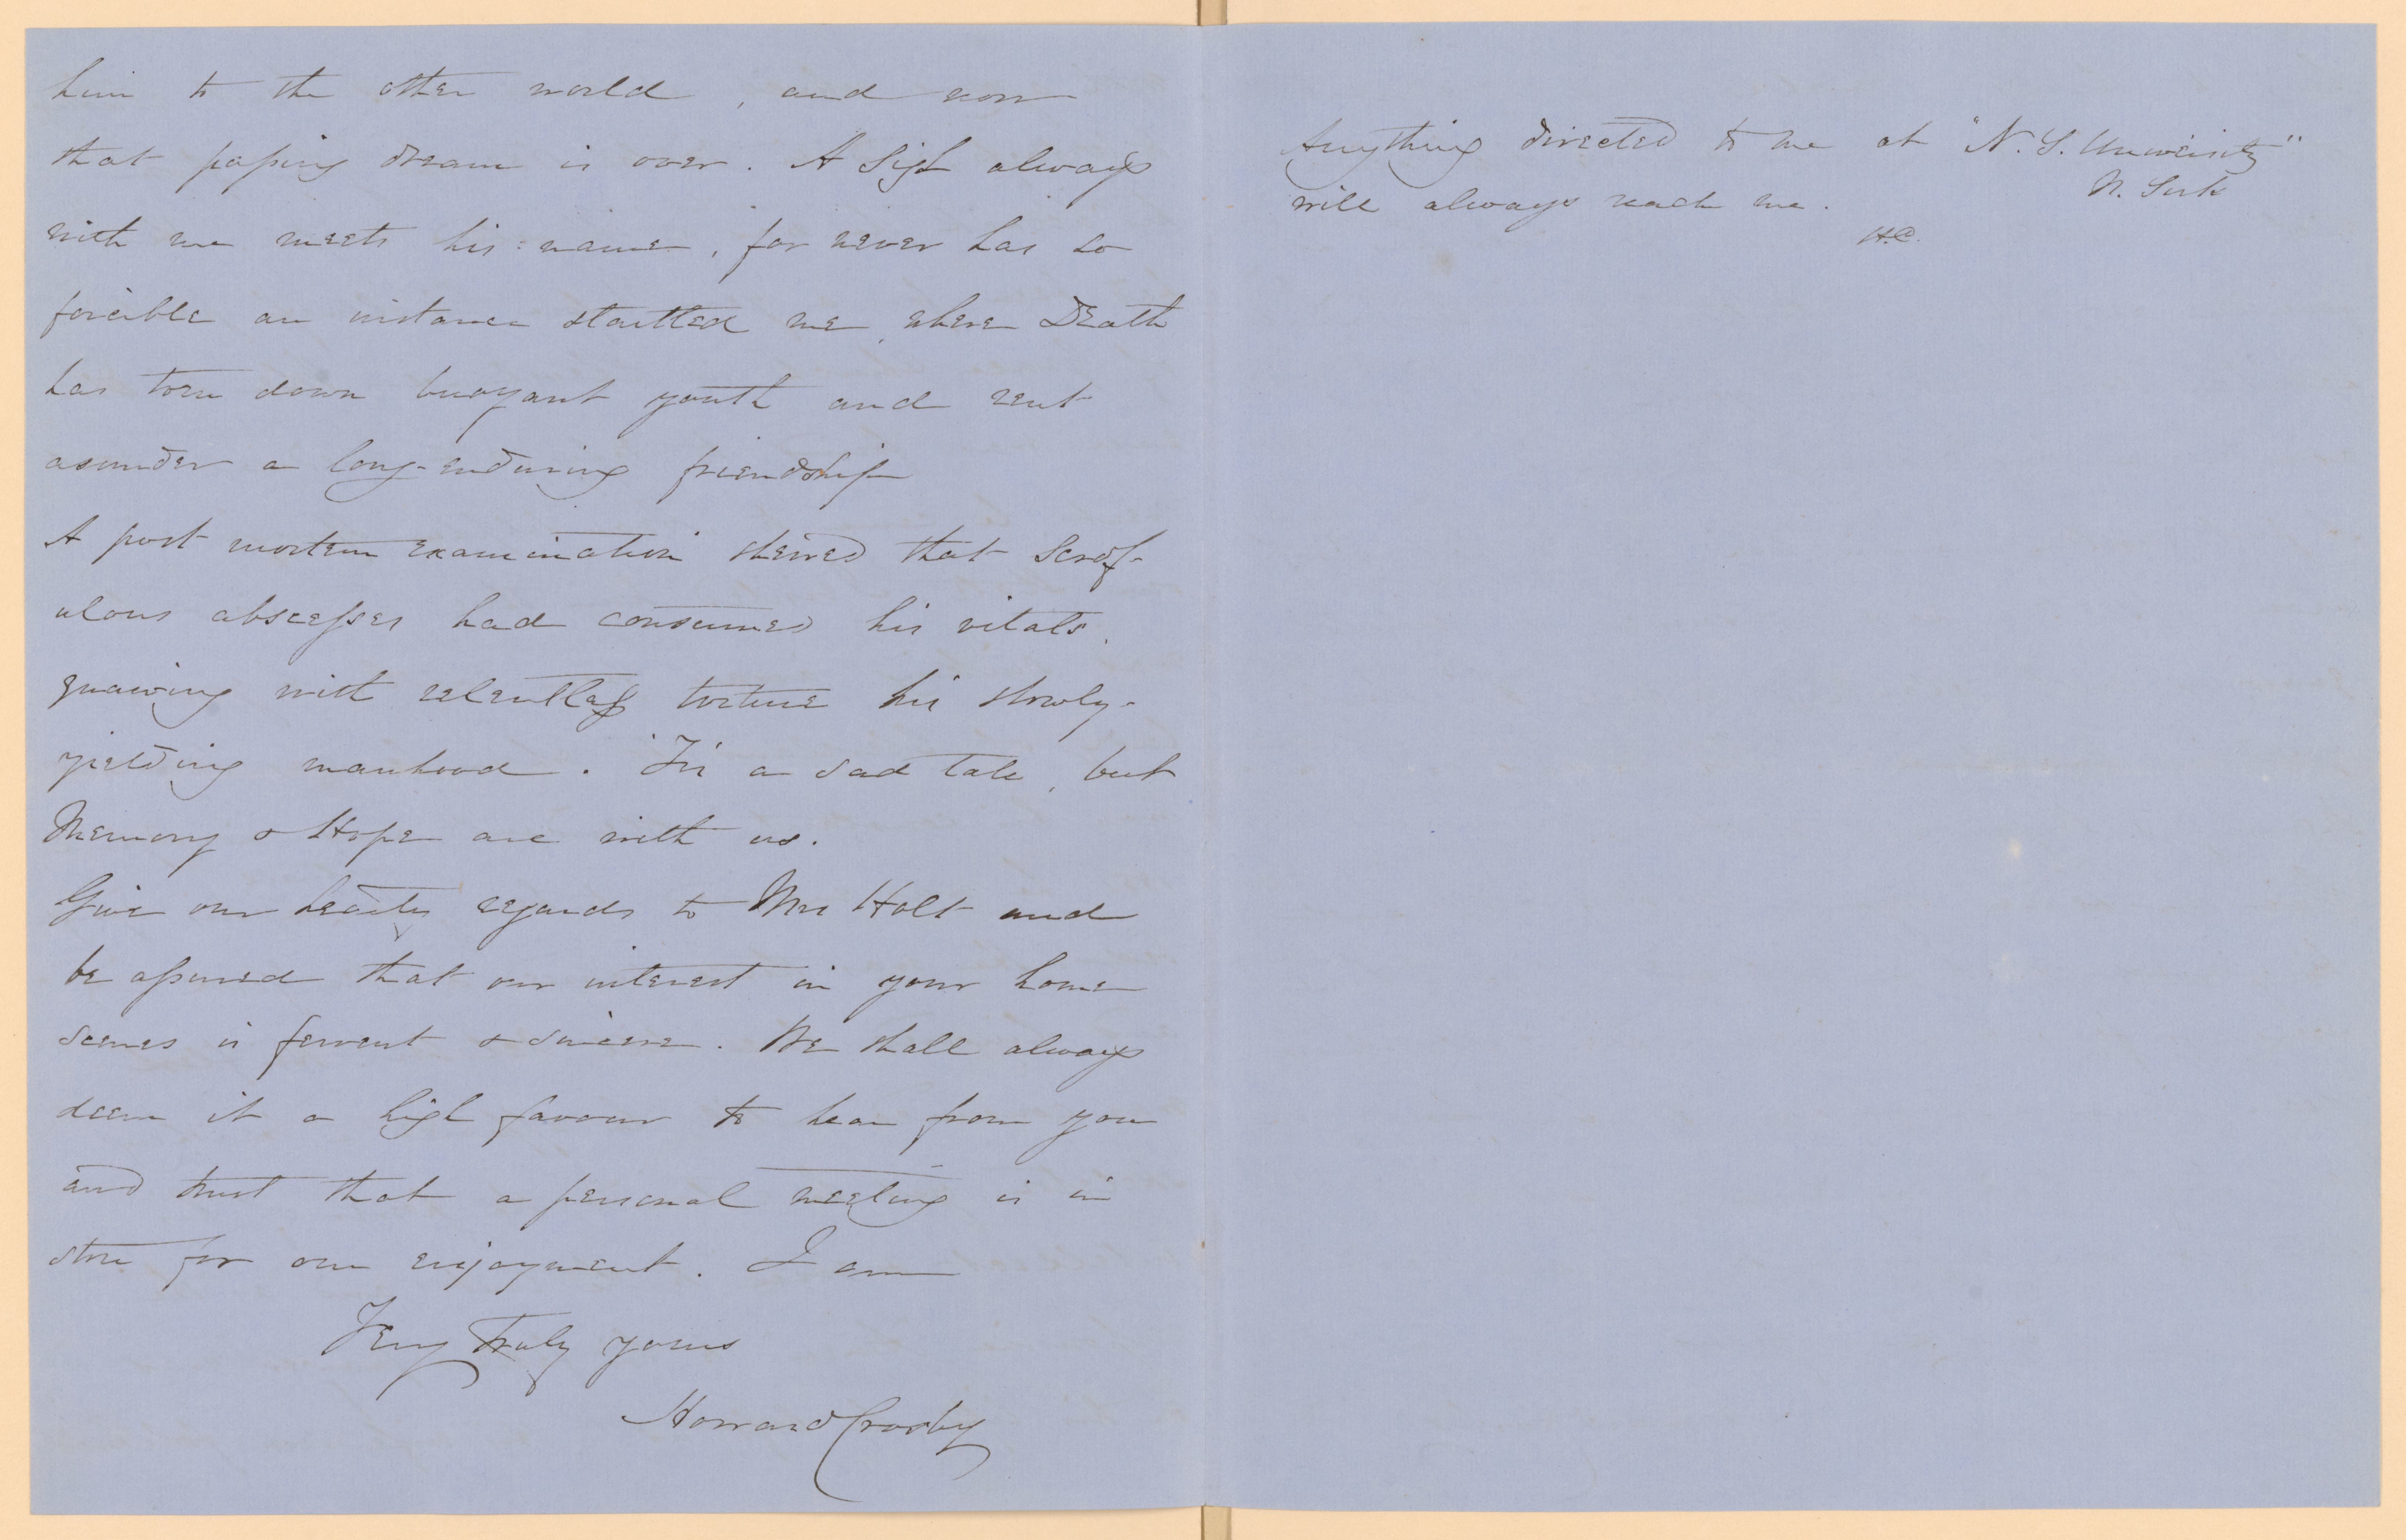 him to the other world, and now
that passing dream is over. A sigh always
with me meets his name, for never has so
forcible an instance startled me, where Death
has torn down buoyant youth and rent
asunder a long-enduring friendship
A post mortem examination shewed that scrof-
ulous abscesses had consumed his vitals,
gnawing with relentless torture his slowly-
yielding manhood. 'Tis a sad tale, but
Memory & Hope are with us.
Give our hearty regards to Mrs Holt and
be assured that our interest in your home
scenes is fervent & sincere. We shall always
deem it a high favour to hear from you
and trust that a personal meeting is in
store for our enjoyment. I am
Very Truly yours
Howard Crosby
Anything directed to me at "N. Y. University"
N. York
will always reach me.
H.C.